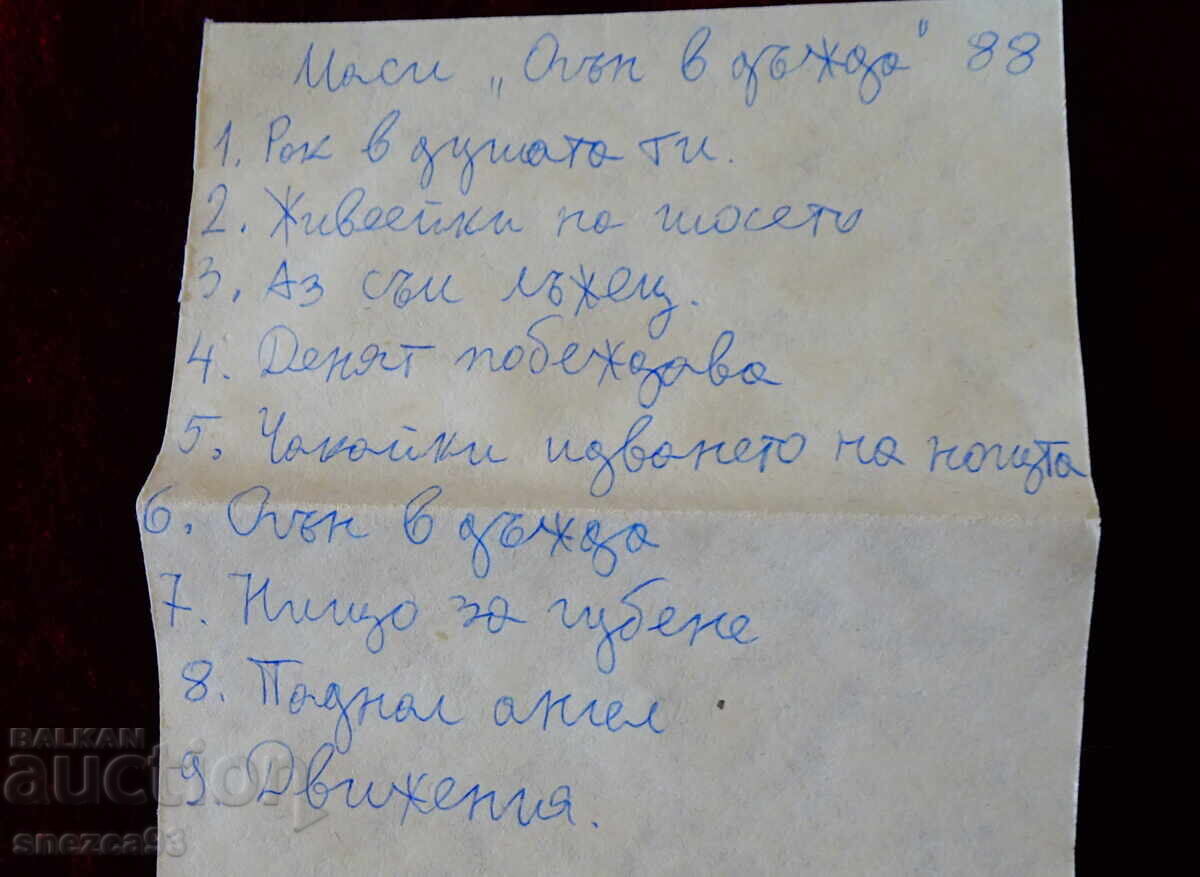 Маси „Огън в дъжда" 88
1. Рок в душата ти.
2. Живеейки на шосето
3. Аз съм лъжец.
4. Денят побеждава
5. Чакайки идването на нощта
6. Огън в дъжда
7. Нищо за губене
8. Паднал ангел
9. Движения.
BALKAN
auction
snezca93